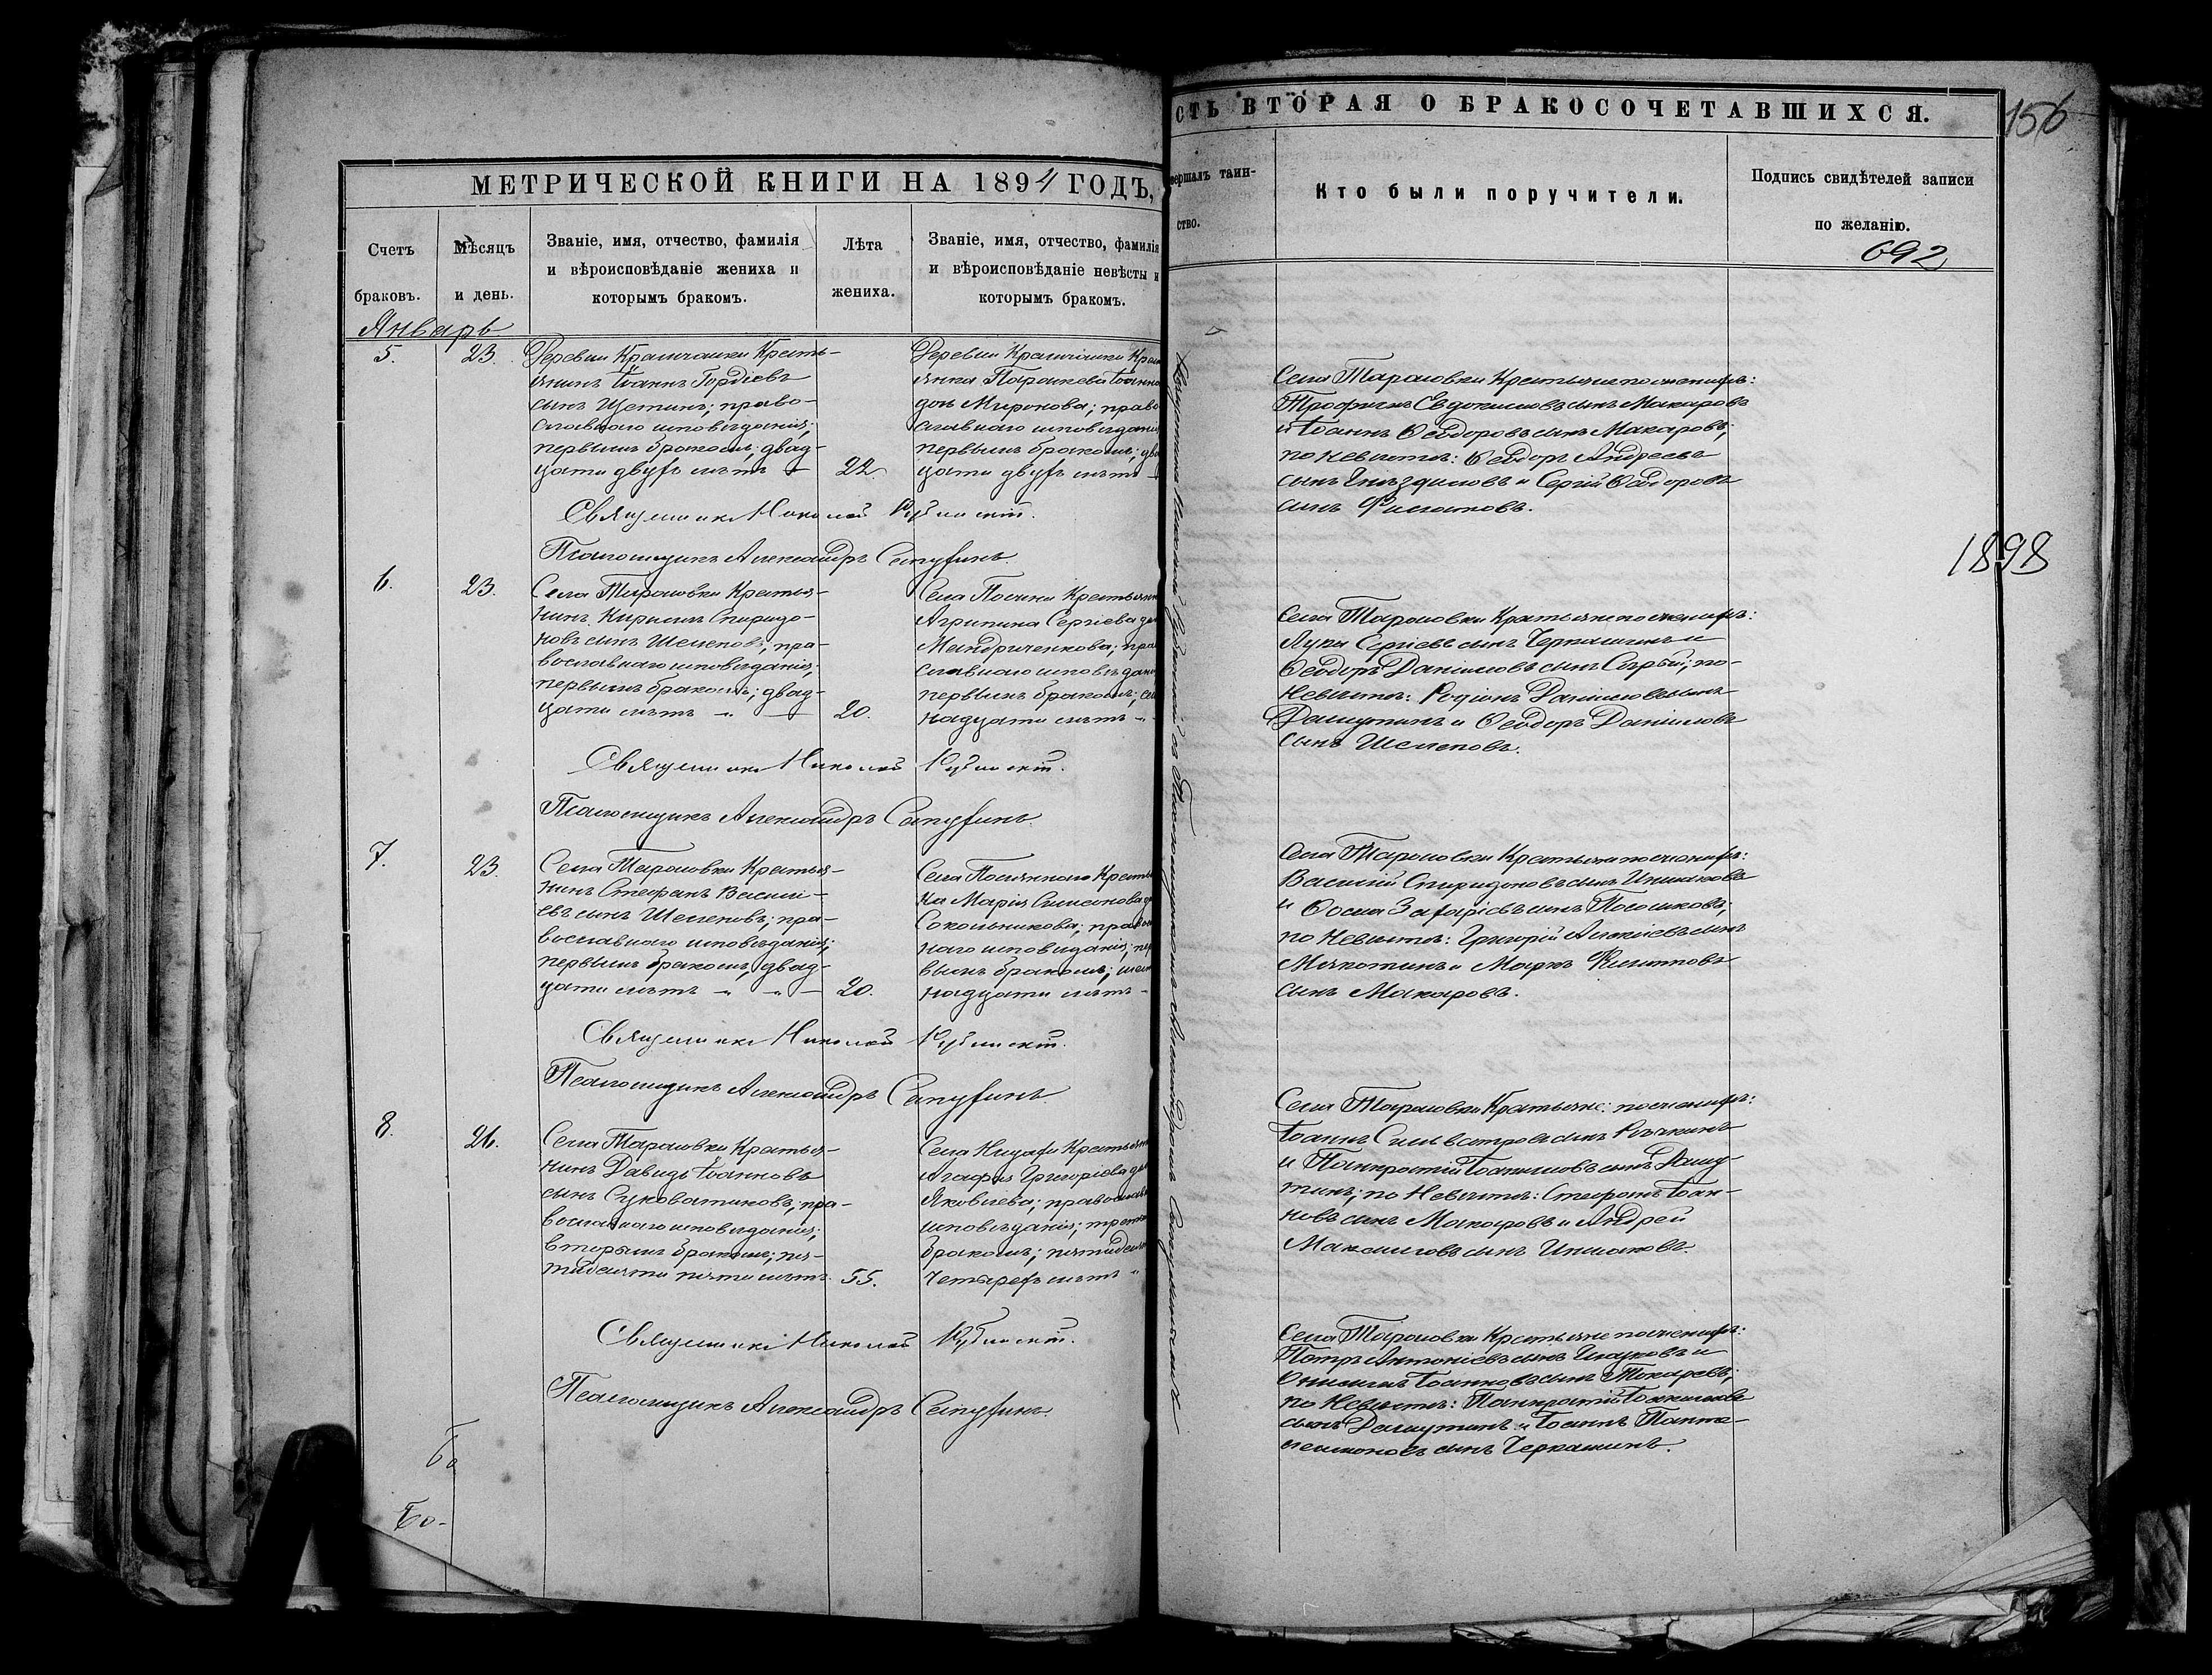 МЕТРИЧЕСКОЙ КНИГИ НА 1894 ГОДЪ,
Счетъ браковъ.
Мѣсяцъ и день.
Званіе, имя, отчество, фамилія
и вѣроисповѣданіе жениха и
которымъ бракомъ.
Лѣта
жениха.
Званіе, имя, отчество, фамилія
и вѣроисповѣданіе невѣсты и
которымъ бракомъ.
Январь
5.
23.
Іоаннъ Гордіевъ
сынъ Щетинъ; право-
славнаго исповѣданія;
первымъ бракомъ, двад-
цати двухъ лѣтъ
22.
Деревни
Параскева Іоанно
Миронова; право
славнаго исповѣдані
первымъ бракомъ; два
цати двухъ лѣтъ
Священникъ Николай
Псаломщикъ Александръ
6.
23.
Села Тарасовки Крестья-
нинъ Кириллъ Спиридо-
новъ сынъ Шелеповъ; пра-
вославнаго исповѣданія;
первымъ бракомъ; двад-
цати лѣтъ
20.
Села
Агрипина Сергіева
славнаго исповѣдан
первымъ бракомъ; сем
надцати лѣтъ
Священникъ Николай
Псаломщикъ Александръ
7.
23.
Села Тарасовки Крестья-
нинъ Стефанъ Васи-
евъ сынъ Шелеповъ; пра-
вославнаго исповѣданія;
первымъ бракомъ, двад-
цати лѣтъ
20.
Села
на Марія Симеонова
Сокольникова; правос
наго исповѣданія; пер
вымъ бракомъ; шест
надцати лѣтъ
Священникъ Николай
Псаломщикъ Александръ
8.
26.
Села Тарасовки Крестья-
нинъ Давидъ Іоанновъ
сынъ Суковатиковъ, пра-
вославнаго исповѣданія;
вторымъ бракомъ; пя-
тидесяти пяти лѣтъ
55.
Села
Агафія Григоріева
Яковлева; православ
исповѣданія; трет
бракомъ; пятидеся
четырехъ лѣтъ
Священникъ Николай
Псаломщикъ Александръ
СТЬ ВТОРАЯ О БРАКОСОЧЕТАВШИХСЯ.
156
вершалъ таин-
ство.
Кто были поручители.
Подпись свидѣтелей записи
по желанію.
692
Села Тарасовки Крестьяне по женихѣ:
Трофимъ Евдокимовъ сынъ Макаровъ
и Іоаннъ Ѳеодоровъ сынъ Макаровъ;
по невѣстѣ: Ѳеодоръ Андреевъ
сынъ Гнѣздиловъ и Сергій Ѳеодоровъ
сынъ Филатовъ.
1898
Села Тарасовки Крестьяне по женихѣ:
Лука Сергіевъ сынъ Черкашинъ и
Ѳеодоръ Даніиловъ сынъ Сѣрый; по-
невѣстѣ: Родіонъ Даніиловъ сынъ
Дашутинъ и Ѳеодоръ Даніиловъ
сынъ Шелеповъ.
Села Тарасовки Крестьяне по женихѣ:
Василій Спиридоновъ сынъ Иншаковъ
и Ѳома Захаріевъ сынъ Посошковъ;
по невѣстѣ: Григорій Алексіевъ сынъ
Мякотинъ и Маркъ Филипповъ
сынъ Макаровъ.
Села Тарасовки Крестьяне: по женихѣ:
Іоаннъ Сильвестровъ сынъ Рѣчкинъ
и Панкратій Іоакимовъ сынъ Дашу-
тинъ; по Невѣстѣ: Стефанъ Іоан-
новъ сынъ Макаровъ и Андрей
Максимовъ сынъ Иншаковъ.
Села Тарасовки Крестьяне по женихѣ:
Іоанновъ сынъ Токаревъ;
по Невѣстѣ: Панкратій Іоакимовъ
сынъ Дашутинъ и Іоаннъ Панте-
леимоновъ сынъ Черкашинъ.